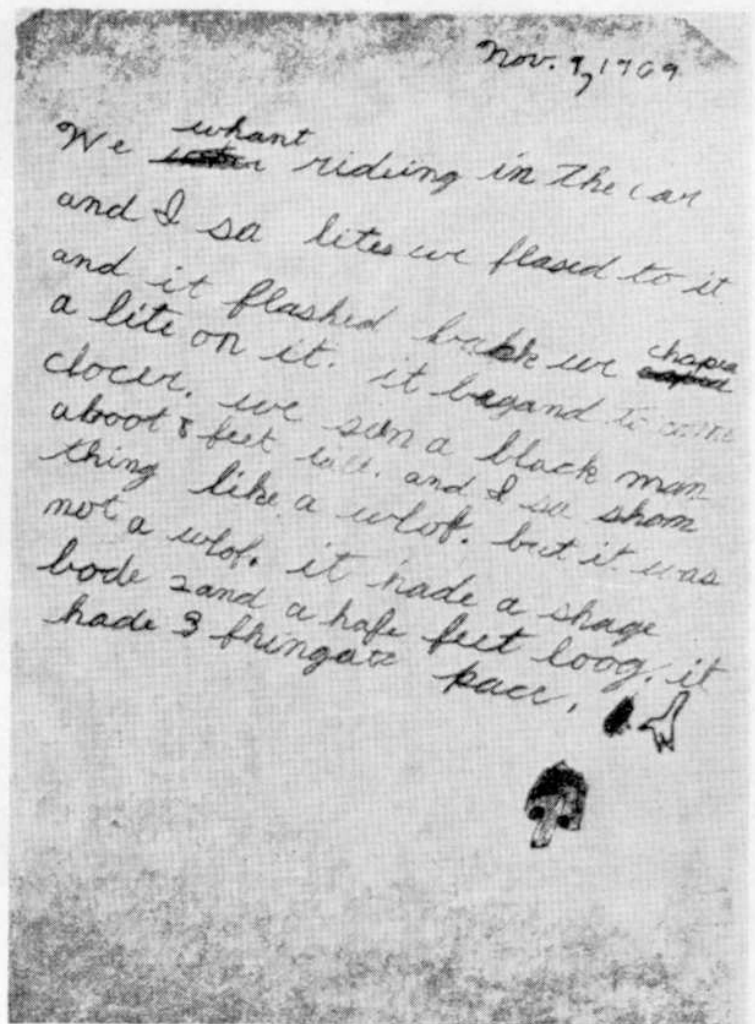 Nov. 9, 1969
We whant rideing in the car
and I sa lites we flased to it
and it flashed back we
a lite on it. it begand to come
clocer. we seen a black man
aboot 8 feet tall. and I sa shom
thing like a wlof. but it was
not a wlof. it hade a shage
bode 2 and a hafe feet loog. it
hade 3 fhingar pace.